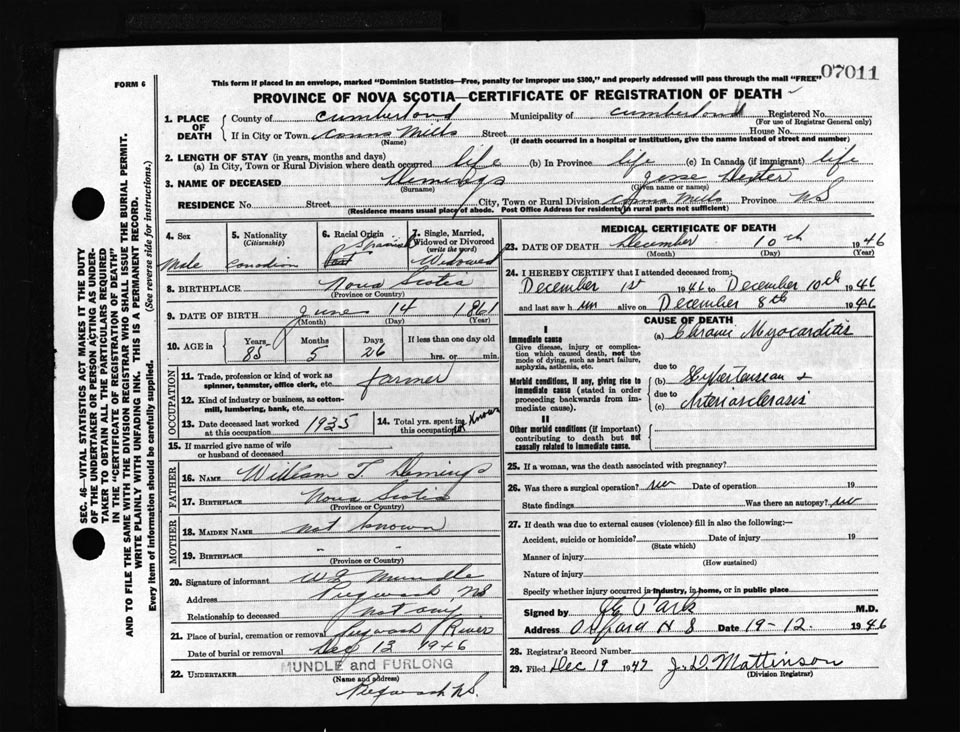 07011
FORM 6
This form if placed in an envelope, marked "Dominion Statistics—Free, penalty for improper use $300," and properly addressed will pass through the mail "FREE"
PROVINCE OF NOVA SCOTIA—CERTIFICATE OF REGISTRATION OF DEATH
SEC. 46—VITAL STATISTICS ACT MAKES IT THE DUTY
OF THE UNDERTAKER OR PERSON ACTING AS UNDER-
TAKER TO OBTAIN ALL THE PARTICULARS REQUIRED
IN THE "CERTIFICATE OF REGISTRATION OF DEATH"
AND TO FILE THE SAME WITH THE DIVISION REGISTRAR WHO SHALL ISSUE THE BURIAL PERMIT.
WRITE PLAINLY WITH UNFADING INK. THIS IS A PERMANENT RECORD.
Every item of information should be carefully supplied. (See reverse side for instructions.)
1. PLACE OF DEATH
County of Cumberland Municipality of Cumberland Registered No.
(For use of Registrar General only)
If in City or Town Conns Mills Street House No.
(Name) (If death occurred in a hospital or institution, give the name instead of street and number)
2. LENGTH OF STAY (in years, months and days)
(a) In City, Town or Rural Division where death occurred life (b) In Province life (c) In Canada (if immigrant) life
3. NAME OF DECEASED Demings Jesse Dexter
(Surname) (Given name or names)
RESIDENCE No Street City, Town or Rural Division Conns Mills Province NS
(Residence means usual place of abode. Post Office Address for residents in rural parts not sufficient)
4. Sex
Male
5. Nationality
(Citizenship)
Canadian
6. Racial Origin
Spanish
7. Single, Married,
Widowed or Divorced
(write the word)
Widowed
8. BIRTHPLACE Nova Scotia
(Province or Country)
9. DATE OF BIRTH June 14 1861
(Month) (Day) (Year)
10. AGE in Years Months Days If less than one day old
85 5 26 hrs. or min.
OCCUPATION
11. Trade, profession or kind of work as
spinner, teamster, office clerk, etc. farmer
12. Kind of industry or business, as cotton-
mill, lumbering, bank, etc.
13. Date deceased last worked
at this occupation 1935
14. Total yrs. spent in
this occupation not Known
15. If married give name of wife
or husband of deceased
FATHER
16. NAME William T Demings
17. BIRTHPLACE Nova Scotia
(Province or Country)
MOTHER
18. MAIDEN NAME not known
19. BIRTHPLACE - -
(Province or Country)
20. Signature of informant W E Mundle
Address Pugwash NS
Relationship to deceased not any
21. Place of burial, cremation or removal Pugwash River
Date of burial or removal Dec 13 1946
22. UNDERTAKER MUNDLE and FURLONG
(Name and address)
Pugwash N.S.
MEDICAL CERTIFICATE OF DEATH
23. DATE OF DEATH December 10th 1946
(Month) (Day) (Year)
24. I HEREBY CERTIFY that I attended deceased from:
December 1st 1946 to December 10th 1946
and last saw him alive on December 8th 1946
CAUSE OF DEATH
I
Immediate cause
Give disease, injury or complica-
tion which caused death, not the
mode of dying, such as heart failure,
asphyxia, asthenia, etc.
(a) Chronic Myocarditis
due to
Morbid conditions, if any, giving rise to
immediate cause (stated in order
proceeding backwards from im-
mediate cause).
(b) Hypertension +
due to
(c) Arteriosclerosis
II
Other morbid conditions (if important)
contributing to death but not
causally related to immediate cause.
25. If a woman, was the death associated with pregnancy?
26. Was there a surgical operation? no Date of operation 19
State findings Was there an autopsy? no
27. If death was due to external causes (violence) fill in also the following:—
Accident, suicide or homicide? Date of injury 19
(State which)
Manner of injury
(How sustained)
Nature of injury
Specify whether injury occurred in industry, in home, or in public place
Signed by M.D.
Address Oxford N S Date 19-12. 1946
28. Registrar's Record Number
29. Filed Dec 19 1947 J. D. Mattinson
(Division Registrar)